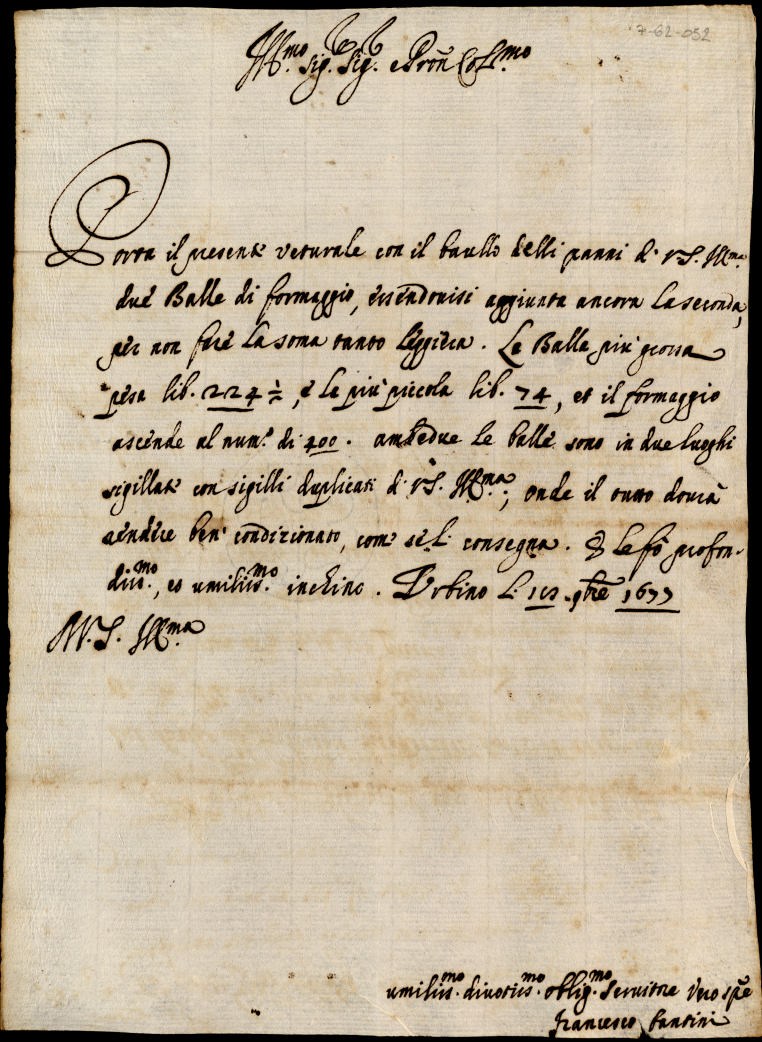 7-62-052
Ill.mo Sig. Sig. e Pron Col.mo
Porta il presente veturale con il baullo delli panni di V.S. Ill.ma
due Balle di formaggio, essendovisi aggiunta ancora la seconda,
per non fare la soma tanto leggiera. La Balla più grossa
pesa lib. 224 ½, e la più piccola lib. 74, et il formaggio
ascende al num.o di 400. ambedue le balle sono in due luoghi
sigillate con sigilli duplicati di V.S. Ill.ma; onde il tutto dovrà
rendere ben condizionato, come se l. consegna. E le fò profon-
diss.mo, et umiliss.mo inchino. Urbino L. 9bre 1677
D.V.S. Ill.ma
umiliss.mo divotiss.mo oblig.mo Servitore Vero spre
Francesco Santini